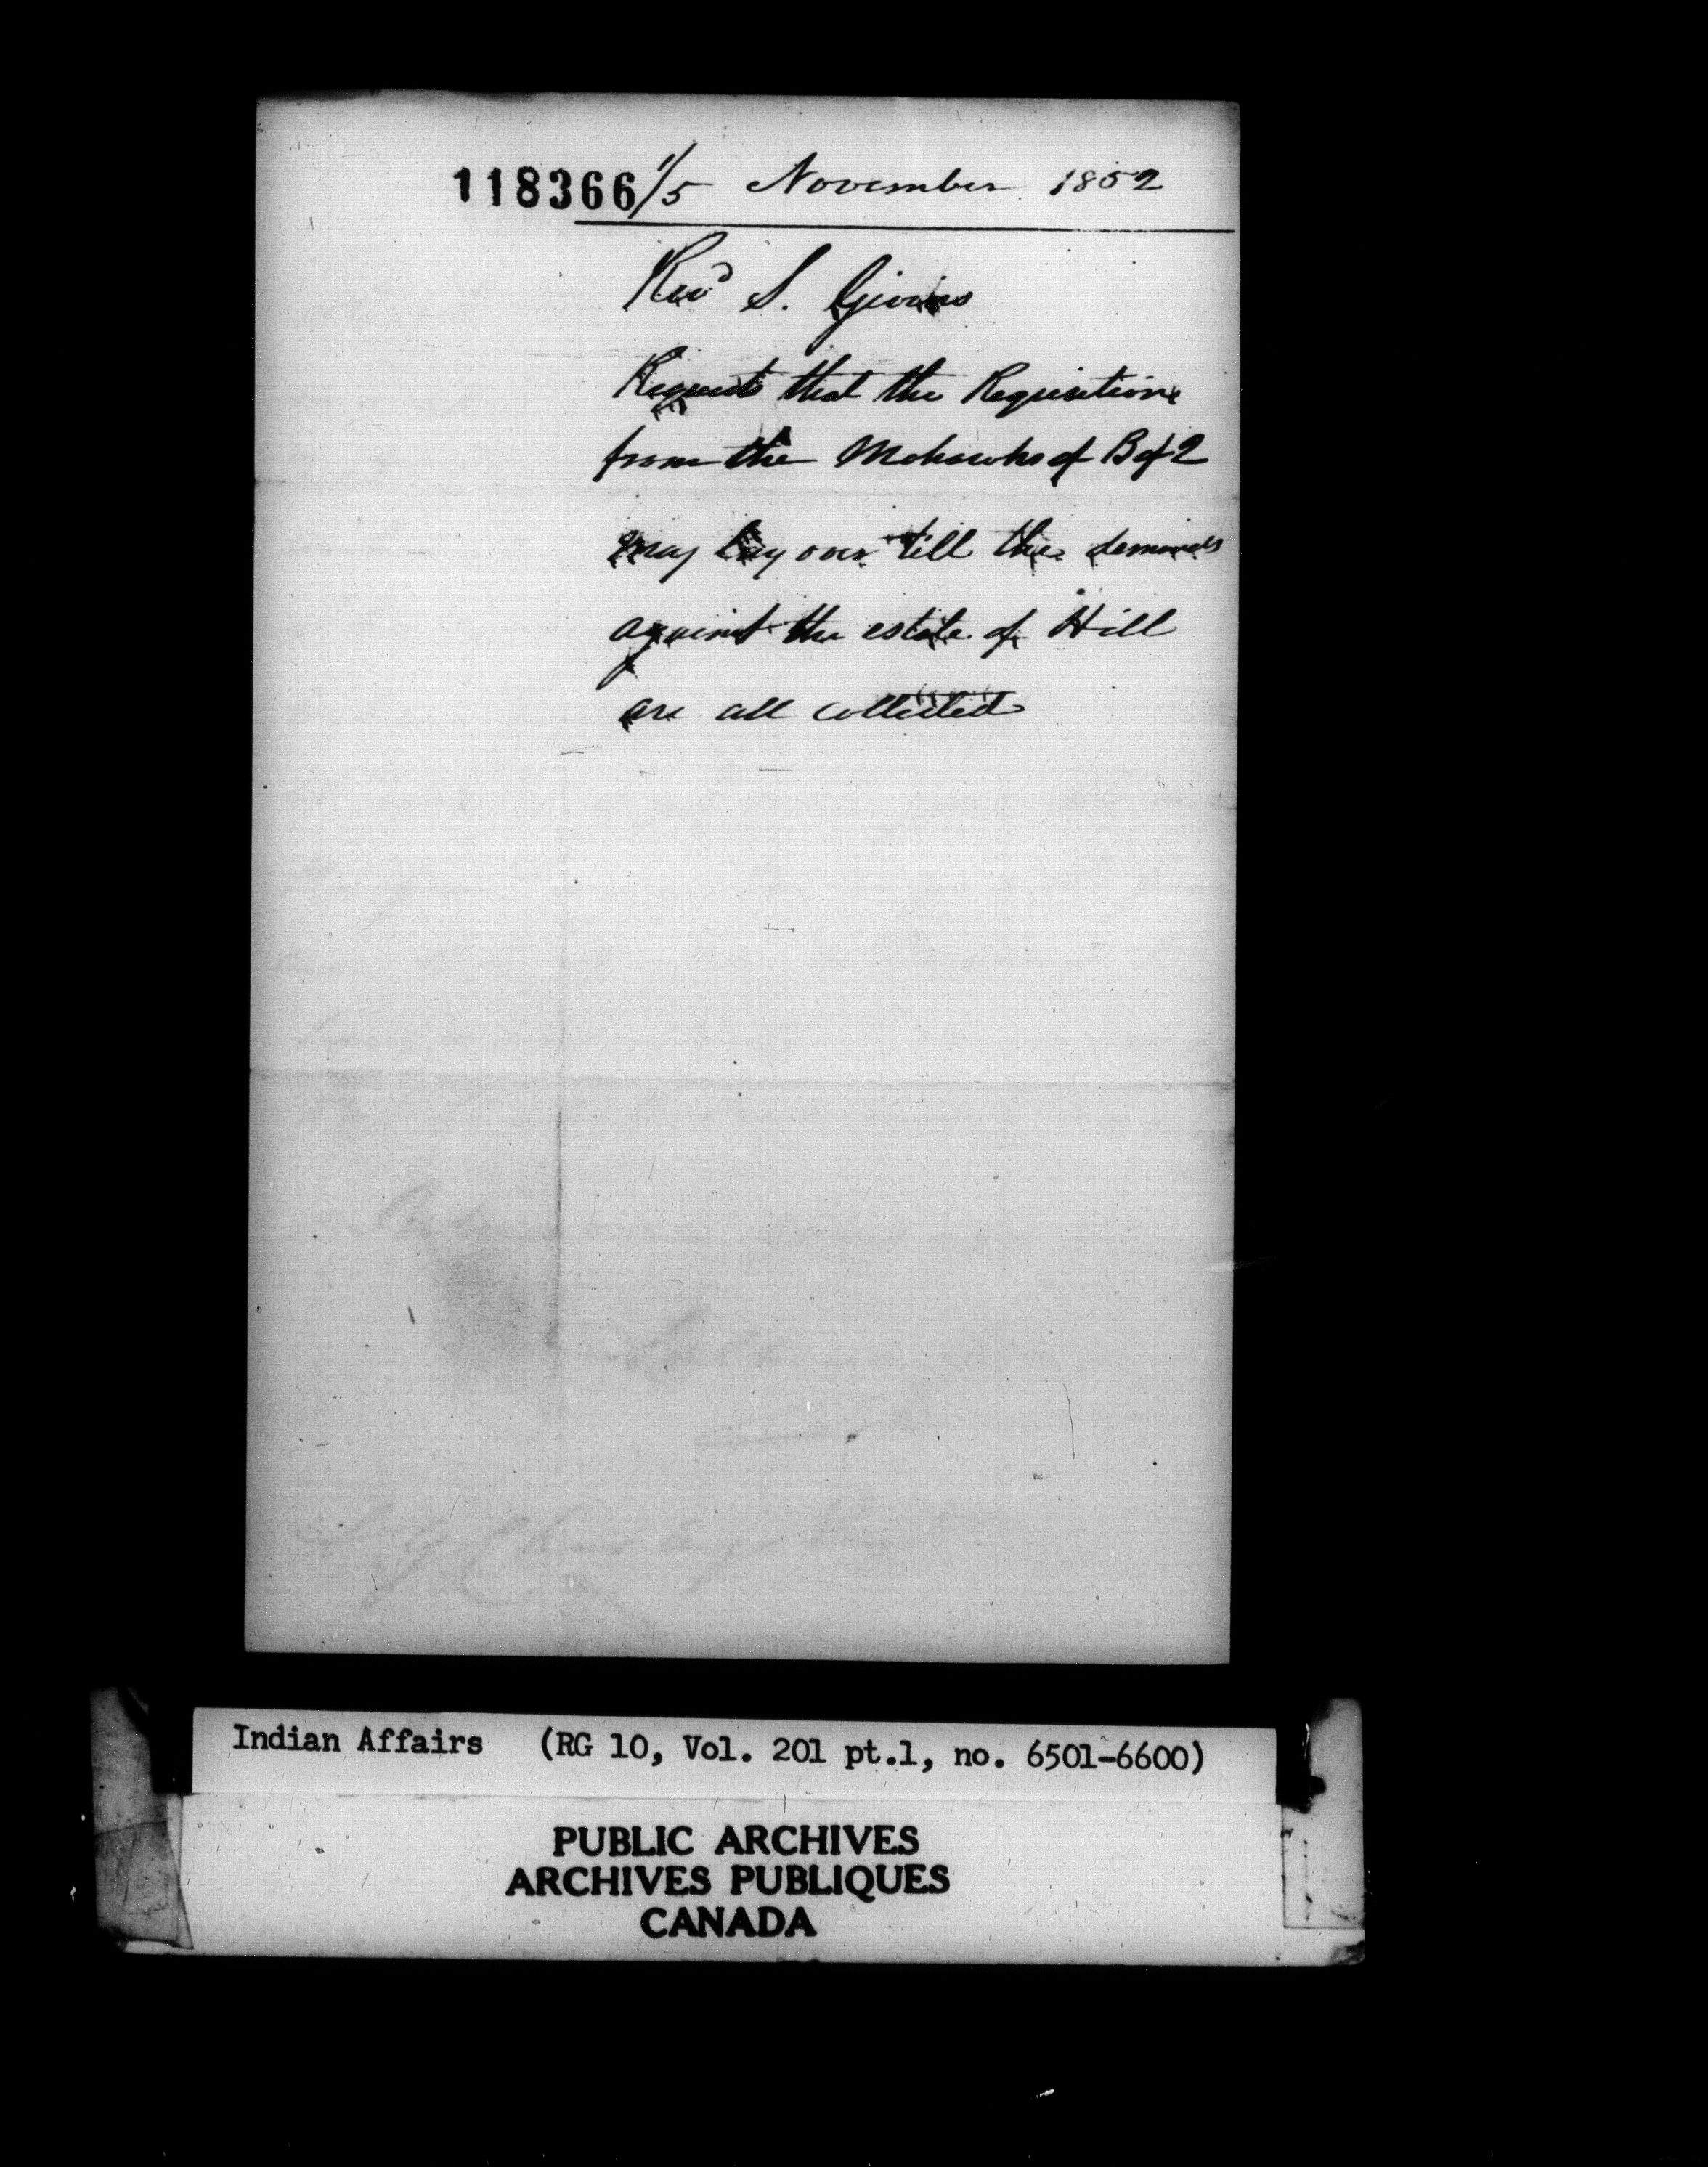 118366 1/5 November 1852
Revd S. Givins
Requests that the Requisitions
from the Mohawks of B of 2
may lay over till the demands
against the estate of Hill
are all collected
Indian Affairs (RG 10, Vol. 201 pt.1, no. 6501-6600)
PUBLIC ARCHIVES
ARCHIVES PUBLIQUES
CANADA